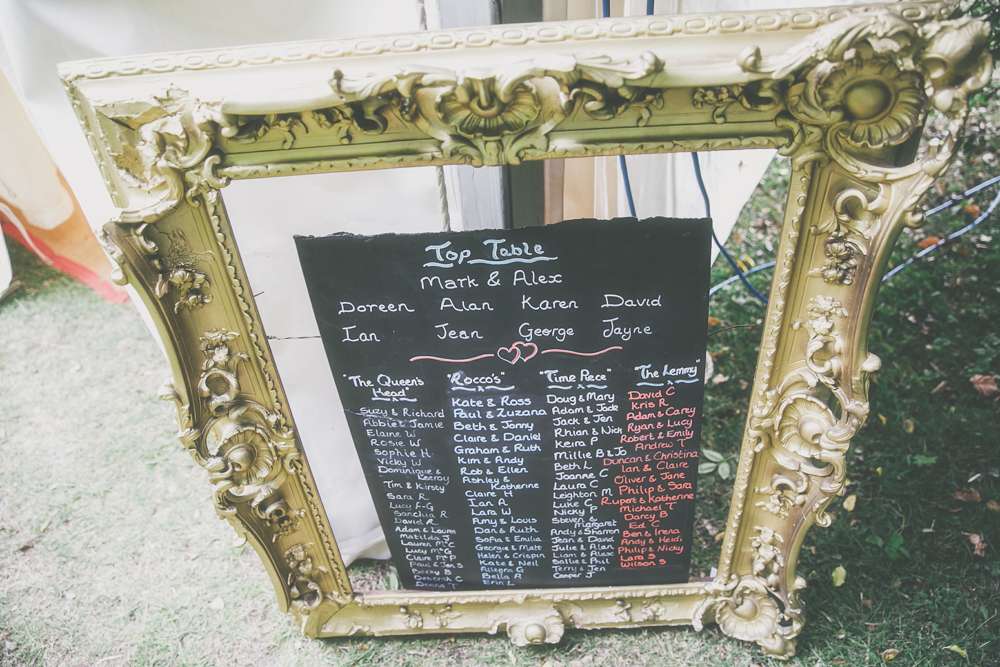 Top Table
Mark & Alex
Doreen Alan Karen David
Ian Jean George Jayne
"The Queen's Head"
Suzy & Richard
Abbie & Jamie
Elaine W
Rosie W
Sophie H
Vicky W
Dominique &
Leeroy
Tim & Kirsty
Sara R
Lucy F-G
Sanchia R
David R
Adam & Louise
Matilda J
Lauren McG
Lucy McG
Claire McG
Paul & Jen S
Becky B
Deborah C
Donna T
"Rocco's"
Kate & Ross
Paul & Zuzana
Beth & Jonny
Claire & Daniel
Graham & Ruth
Kim & Andy
Rob & Ellen
Ashley &
Katherine
Claire H
Ian A
Lara W
Amy & Louis
Dan & Ruth
Sofia & Emilia
Georgie & Matt
Helen & Craig
Kate & Neil
Allegra G
Bella A
Erin L
"Time Piece"
Doug & Mary
Adam & Jade
Jack & Jen
Rhian & Nick
Keira P
Millie B & Jo
Beth L
Joanne C
Laura C
Leighton M
Luke C
Nicky P
Steven &
Margaret
Andy & Sharren
Jean & David
Julie & Alan
Liam & Alise
Sallie & Phil
Terry & Jen
Cooper J
"The Lemmy"
David C
Kris R
Adam & Carey
Ryan & Lucy
Robert & Emily
Andrew T
Duncan & Christina
Ian & Claire
Oliver & Jane
Philip & Sara
Rupert & Katherine
Michael T
Darcy B
Ed C
Ben & Irena
Andy & Heidi
Philip & Nicky
Lara S
Wilson S